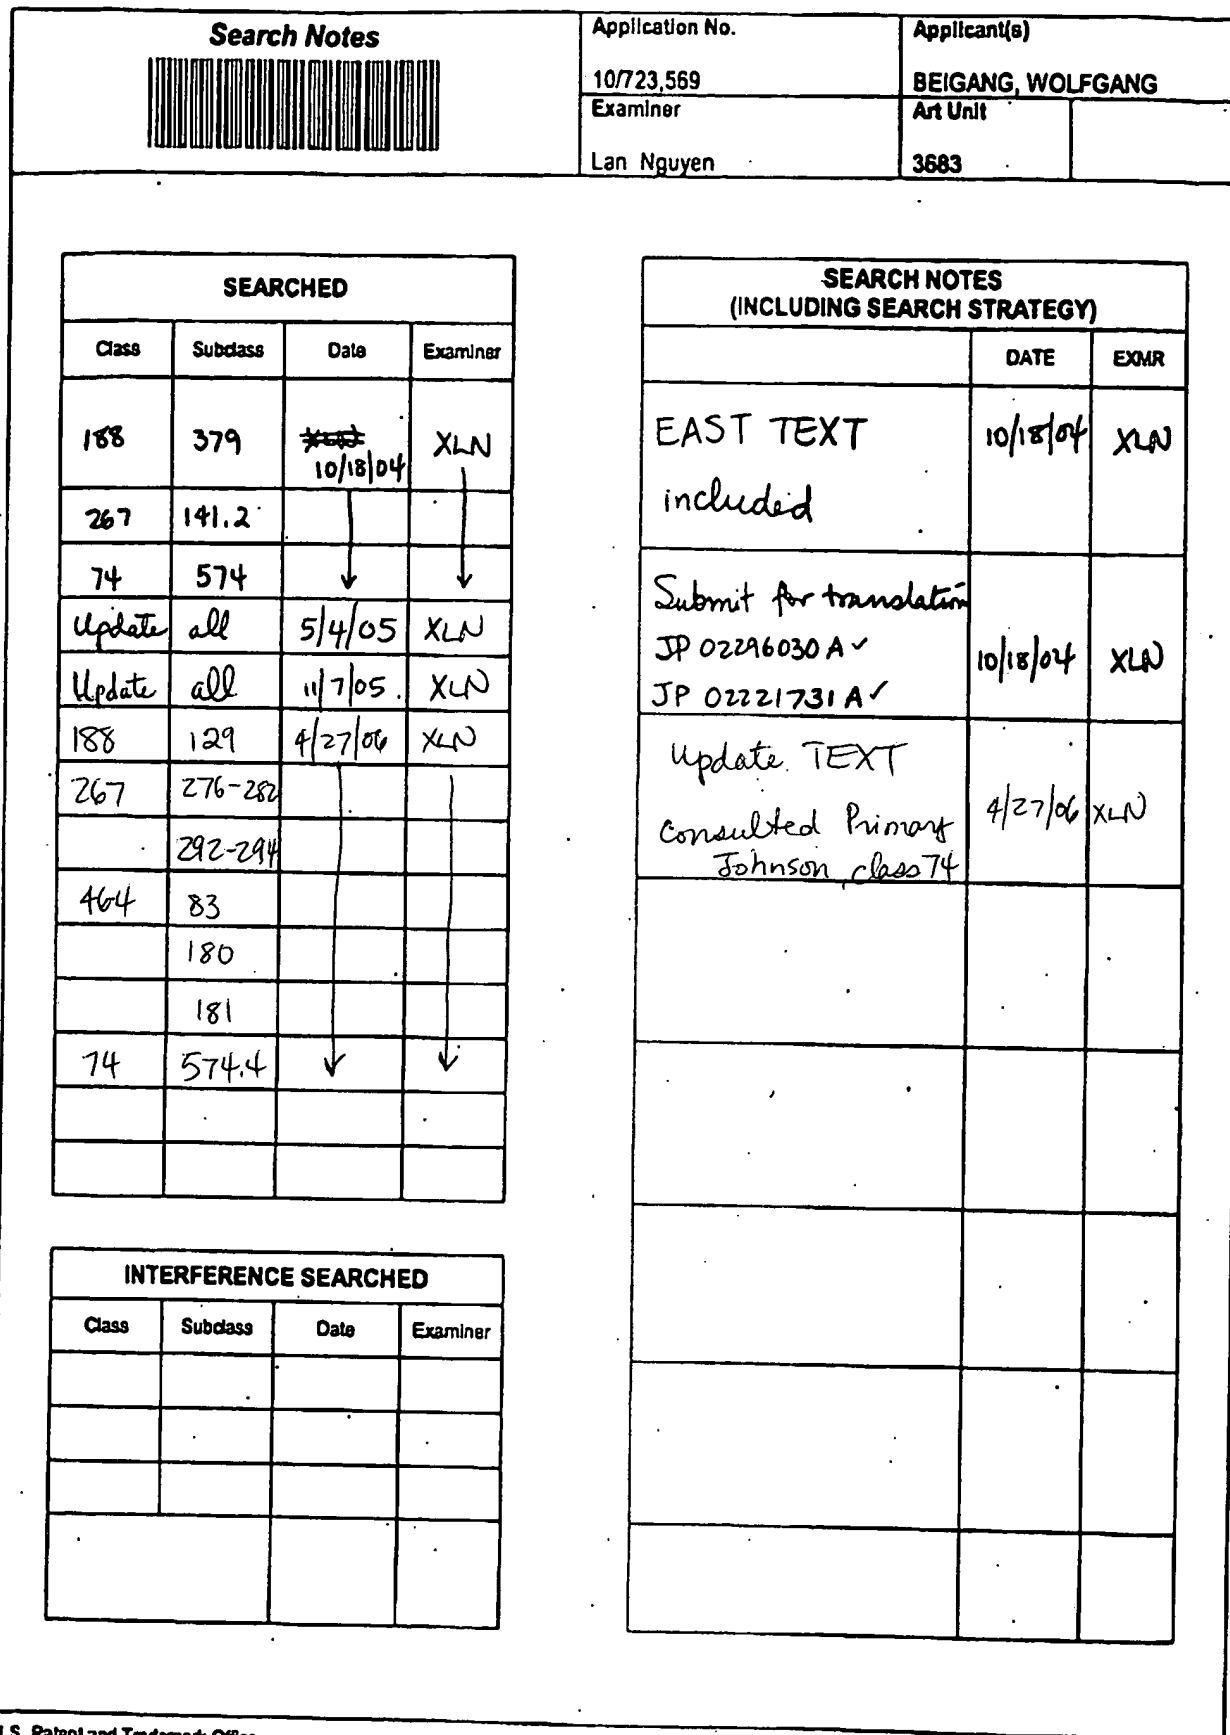 Search Notes
Application No.
10/723,569
Applicant(s)
BEIGANG, WOLFGANG
Examiner
Lan Nguyen
Art Unit
3683
SEARCHED
Class Subclass Date Examiner
188 379 10/18/04 XLN
267 141.2
74 574
Update all 5/4/05 XLN
Update all 11/7/05. XLN
188 129 4/27/06 XLN
267 276-282
292-294
464 83
180
181
74 574.4
INTERFERENCE SEARCHED
Class Subclass Date Examiner
SEARCH NOTES
(INCLUDING SEARCH STRATEGY)
DATE EXMR
EAST TEXT 10/18/04 XLN
included
Submit for translation
JP 02296030 A ✓ 10/18/04 XLN
JP 02221731 A ✓
Update TEXT
Consulted Primary 4/27/06 XLN
Johnson, class 74
U.S. Patent and Trademark Office